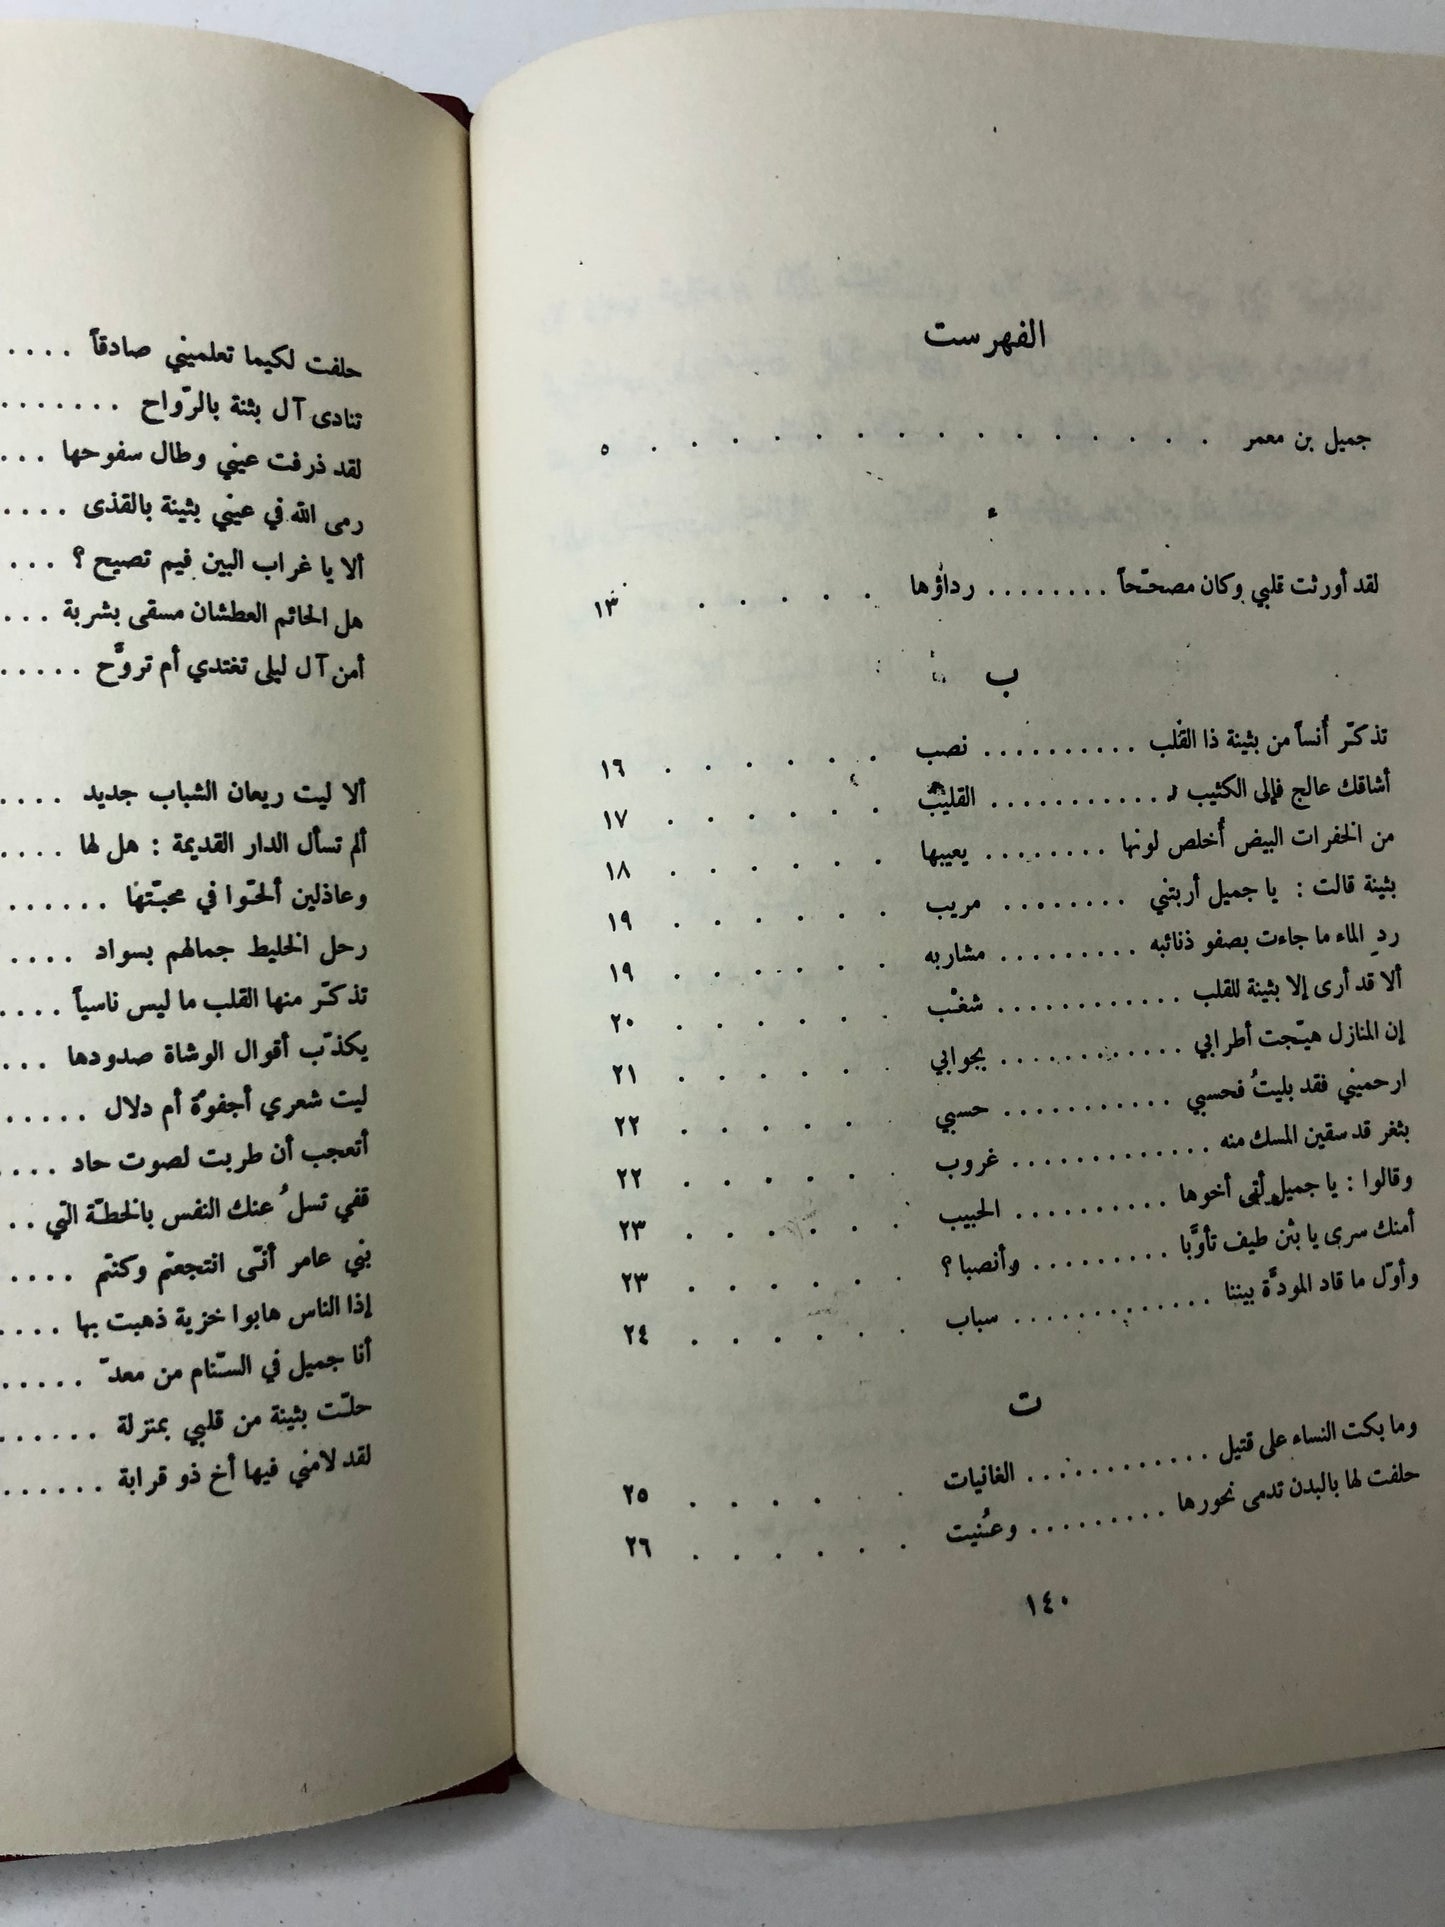 الفهرست
جميل بن معمر . . . . . . . . . . . . . . ٥
ء
لقد أورثت قلبي وكان مصحّحاً . . . . . . . . رداؤها . . . . . ١٣
ب
تذكّر أُنساً من بثينة ذا القلب . . . . . . . . . . نصب . . . . . . ١٦
أشاقك عالج فإلى الكثيب . . . . . . . . . . . . القليب . . . . . . ١٧
من الخفرات البيض أُخلص لونها . . . . . . . . يعيبها . . . . . . ١٨
بثينة قالت : يا جميل أربتني . . . . . . . . مريب . . . . . . ١٩
ردِ الماء ما جاءت بصفو ذنائبه . . . . . . . . . مشاربه . . . . . . ١٩
ألا قد أرى إلا بثينة للقلب . . . . . . . . . . . . شغْب . . . . . . ٢٠
إن المنازل هيّجت أطرابي . . . . . . . . . . . . بجوابي . . . . . . ٢١
ارحميني فقد بليتُ فحسبي . . . . . . . . . . . حسبي . . . . . . ٢٢
بثغر قد سقين المسك منه . . . . . . . . . . . . . غروب . . . . . . ٢٢
وقالوا : يا جميل أتى أخوها . . . . . . . . . . الحبيب . . . . . . ٢٣
أمنك سرى يا بثن طيف تأوّبا . . . . . . . . . وأنصبا ؟ . . . . . . ٢٣
وأوّل ما قاد المودّة بيننا . . . . . . . . . . . . . سباب . . . . . . ٢٤
ت
وما بكت النساء على قتيل . . . . . . . . . . . . الغانيات . . . . . . ٢٥
حلفت لها بالبدن تدمى نحورها . . . . . . . . . وعُنيت . . . . . . ٢٦
١٤٠
حلفت لكيما تعلميني صادقاً . . . .
تنادى آل بثنة بالرّواح . . . . . . .
لقد ذرفت عيني وطال سفوحها . . .
رمى الله في عيني بثينة بالقذى . . . .
ألا يا غراب البين فيم تصيح ؟ . . .
هل الحائم العطشان مسقى بشربة . . .
أمن آل ليلى تغتدي أم تروّح . . . . .
ألا ليت ريعان الشباب جديد . . . .
ألم تسأل الدار القديمة : هل لها . . . .
وعاذلين ألحّوا في محبّتها . . . . . . .
رحل الخليط جمالهم بسواد . . . .
تذكّر منها القلب ما ليس ناسياً . . . .
يكذّب أقوال الوشاة صدودها . . .
ليت شعري أجفوةٌ أم دلال . . . . .
أتعجب أن طربت لصوت حاد . . . .
قفي تسلُ عنك النفس بالخطّة التي . .
بني عامر أنّى انتجعتم وكنتم . . . .
إذا الناس هابوا خزية ذهبت بها . . . .
أنا جميل في السّنام من معدّ . . . . .
حلّت بثينة من قلبي بمنزلة . . . . . .
لقد لامني فيها أخ ذو قرابة . . . . . .